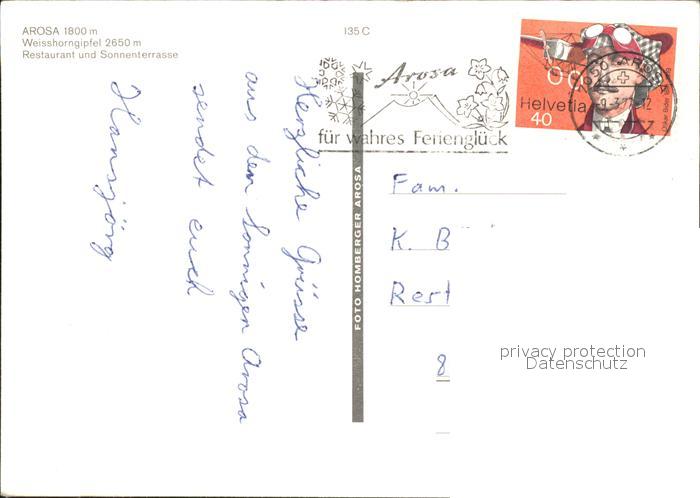 AROSA 1800 m
Weisshorngipfel 2650 m
Restaurant und Sonnenterrasse
135 C
Arosa
für wahres Ferienglück
Helvetia
40
7050 AROSA
FOTO HOMBERGER AROSA
Herzliche Grüsse
aus dem sonnigen Arosa
sendet euch
Hansjörg
Fam.
K. B
Rest
8
privacy protection
Datenschutz